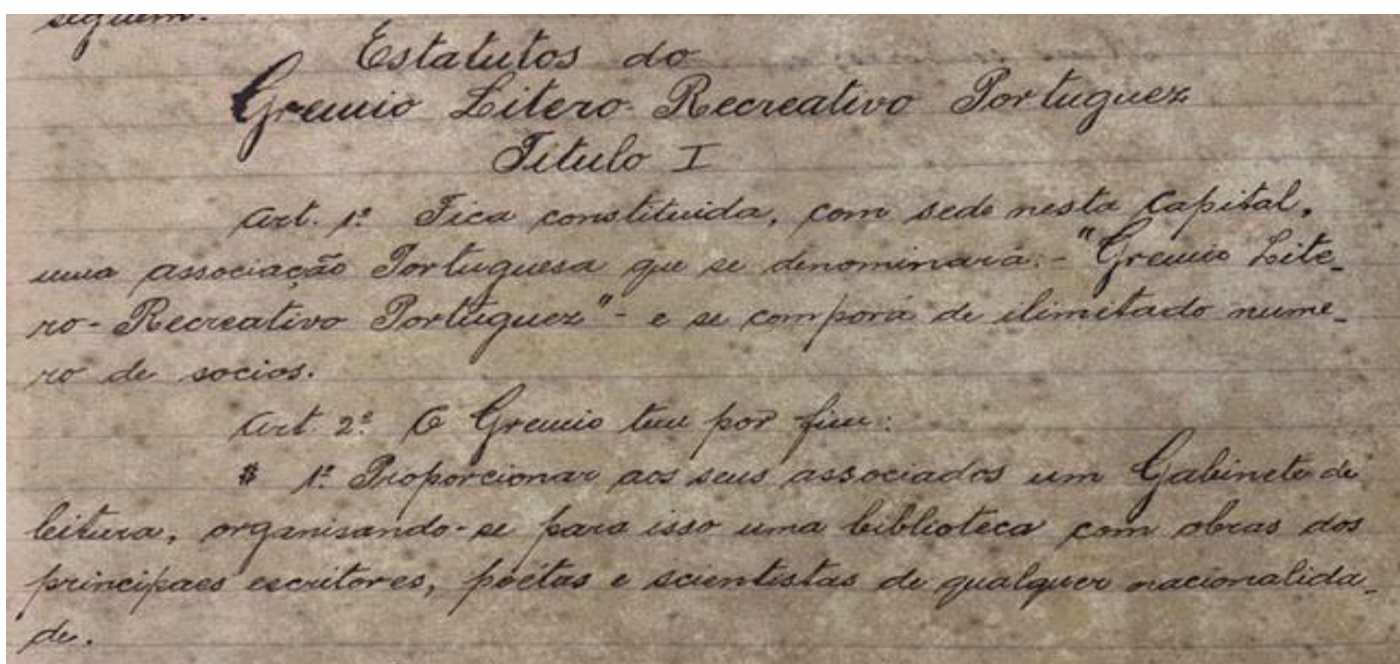 seguem.
Estatutos do
Gremio Litero-Recreativo Portuguez
Titulo I
Art. 1º Fica constituida, com sede nesta Capital,
uma associação Portuguesa que se denominará:- "Gremio Lite-
ro-Recreativo Portuguez"- e se comporá de ilimitado nume-
ro de socios.
Art. 2º O Gremio tem por fim:
§ 1º Proporcionar aos seus associados um Gabinete de
leitura, organisando-se para isso uma biblioteca com obras dos
principaes escritores, poétas e scientistas de qualquer nacionalida-
de.